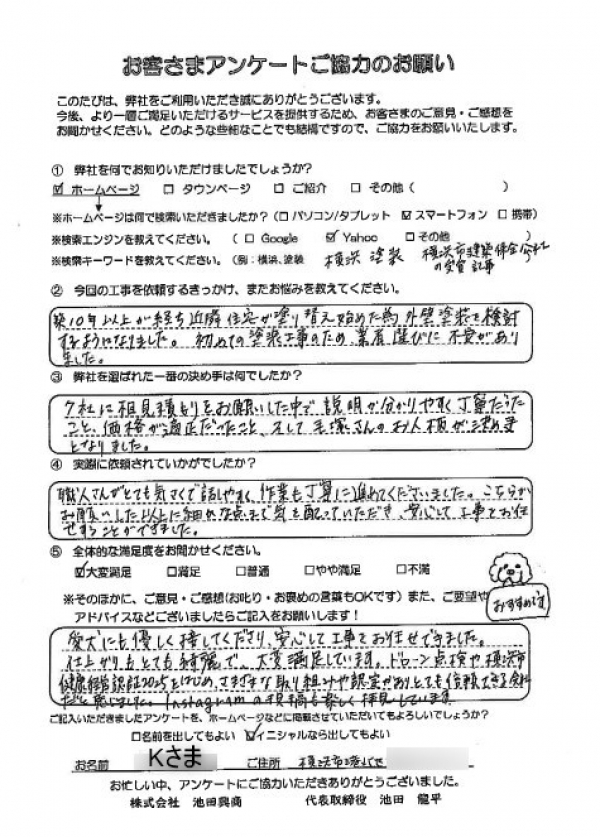 お客さまアンケートご協力のお願い
このたびは、弊社をご利用いただき誠にありがとうございます。
今後、より一層ご満足いただけるサービスを提供するため、お客さまのご意見・ご感想を
お聞かせください。どのような些細なことでも結構ですので、ご協力をお願いいたします。
① 弊社を何でお知りいただけましたでしょうか?
☑ ホームページ □ タウンページ □ ご紹介 □ その他 ( )
※ホームページは何で検索いただきましたか? (□ パソコン/タブレット ☑ スマートフォン □ 携帯)
※検索エンジンを教えてください。 ( □ Google ☑ Yahoo □ その他 )
※検索キーワードを教えてください。(例:横浜、塗装 横浜 塗装 横浜市建築保全公社
の受賞記事
② 今回の工事を依頼するきっかけ、またお悩みを教えてください。
築10年以上が経ち近隣住宅が塗り替え始めた為外壁塗装を検討
するようになりました。初めての塗装工事のため、業者選びに不安があり
ました。
③ 弊社を選ばれた一番の決め手は何でしたか?
7社に相見積もりをお願いした中で説明が分かりやすく丁寧だった
こと、価格が適正だったこと、そして毛塚さんのお人柄が決め手
となりました。
④ 実際に依頼されていかがでしたか?
職人さんがとても気さくで話しやすく、作業も丁寧に進めてくださいました。こちらが
お願いした以上に細かな点まで気を配っていただき、安心して工事をお任
せすることができました。
⑤ 全体的な満足度をお聞かせください。
☑大変満足 □満足 □普通 □やや満足 □不満
※そのほかに、ご意見・ご感想(お叱り・お褒めの言葉もOKです)また、ご要望や
アドバイスなどございましたらご記入をお願いします!
おすすめです
愛犬にも優しく接してくださり、安心して工事をお任せできました。
仕上がりもとても綺麗で、大変満足しています。ドローン点検や横浜市
健康経営認証2025をはじめ、さまざまな取り組みや認定がありとても信頼できる会社
だと感じました。Instagramの投稿も楽しく拝見しています
ご記入いただきましたアンケートを、ホームページなどに掲載させていただいてもよろしいでしょうか?
□名前を出してもよい ☑イニシャルなら出してもよい
お名前 Kさま ご住所 横浜市港北区
お忙しい中、アンケートにご協力いただきありがとうございました。
株式会社 池田興商 代表取締役 池田 龍平